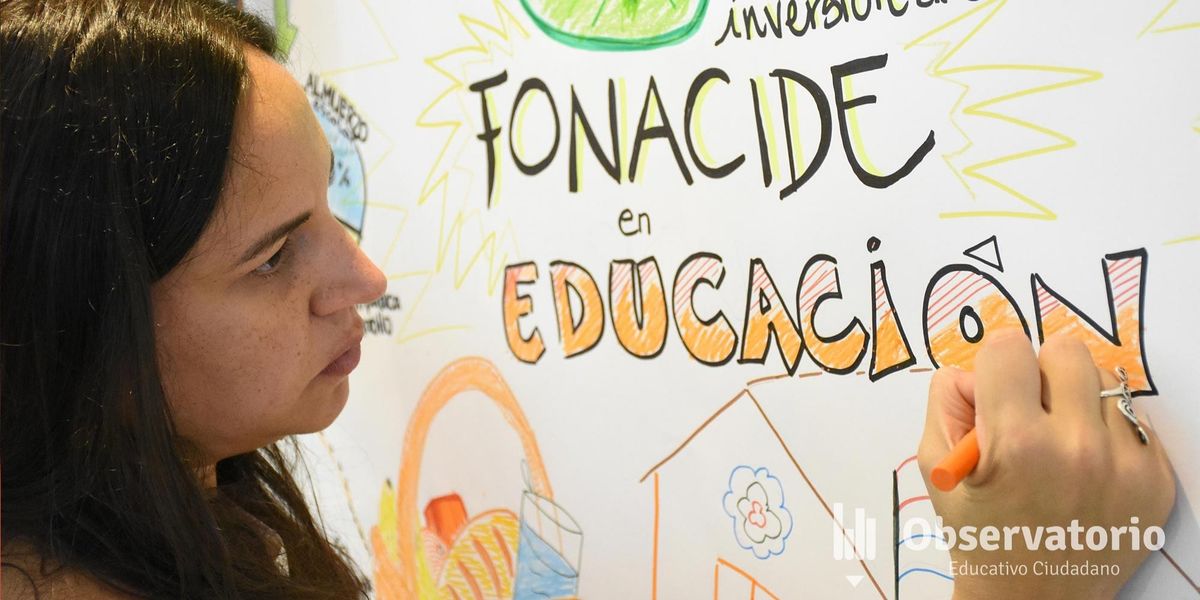 inversión
FONACIDE
en
EDUCACIÓN
ALMUERZO
%
Observatorio
Educativo Ciudadano